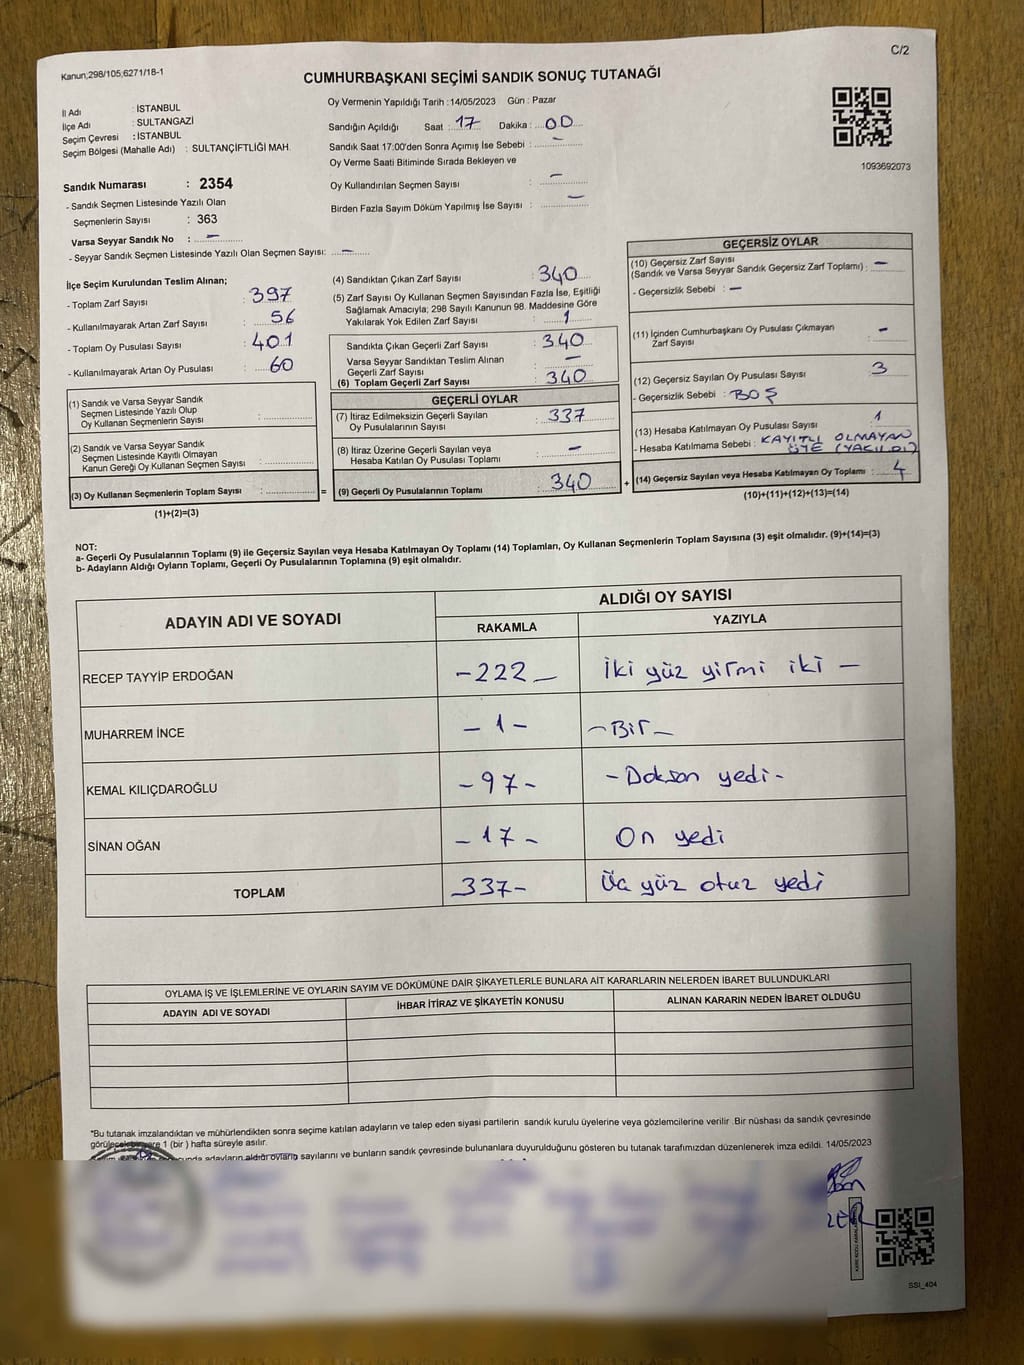 C/2
Kanun;298/105;6271/18-1
CUMHURBAŞKANI SEÇİMİ SANDIK SONUÇ TUTANAĞI
İl Adı : İSTANBUL
İlçe Adı : SULTANGAZİ
Seçim Çevresi : İSTANBUL
Seçim Bölgesi (Mahalle Adı) : SULTANÇİFTLİĞİ MAH.
Oy Vermenin Yapıldığı Tarih :14/05/2023 Gün : Pazar
Sandığın Açıldığı Saat : 17 Dakika : 00
Sandık Saat 17:00'den Sonra Açımış İse Sebebi : –
Oy Verme Saati Bitiminde Sırada Bekleyen ve
Oy Kullandırılan Seçmen Sayısı : –
Birden Fazla Sayım Döküm Yapılmış İse Sayısı : –
1093692073
Sandık Numarası : 2354
- Sandık Seçmen Listesinde Yazılı Olan
Seçmenlerin Sayısı : 363
Varsa Seyyar Sandık No : –
- Seyyar Sandık Seçmen Listesinde Yazılı Olan Seçmen Sayısı: –
İlçe Seçim Kurulundan Teslim Alınan;
- Toplam Zarf Sayısı : 397
- Kullanılmayarak Artan Zarf Sayısı : 56
- Toplam Oy Pusulası Sayısı : 401
- Kullanılmayarak Artan Oy Pusulası : 60
(1) Sandık ve Varsa Seyyar Sandık
Seçmen Listesinde Yazılı Olup
Oy Kullanan Seçmenlerin Sayısı :
(2) Sandık ve Varsa Seyyar Sandık
Seçmen Listesinde Kayıtlı Olmayan
Kanun Gereği Oy Kullanan Seçmen Sayısı :
(3) Oy Kullanan Seçmenlerin Toplam Sayısı : =
(1)+(2)=(3)
(4) Sandıktan Çıkan Zarf Sayısı : 340
(5) Zarf Sayısı Oy Kullanan Seçmen Sayısından Fazla İse, Eşitliği
Sağlamak Amacıyla; 298 Sayılı Kanunun 98. Maddesine Göre
Yakılarak Yok Edilen Zarf Sayısı : 1
Sandıkta Çıkan Geçerli Zarf Sayısı : 340
Varsa Seyyar Sandıktan Teslim Alınan
Geçerli Zarf Sayısı : –
(6) Toplam Geçerli Zarf Sayısı : 340
GEÇERLİ OYLAR
(7) İtiraz Edilmeksizin Geçerli Sayılan
Oy Pusulasının Sayısı : 337
(8) İtiraz Üzerine Geçerli Sayılan veya
Hesaba Katılan Oy Pusulası Toplamı : –
(9) Geçerli Oy Pusulalarının Toplamı : 340 +
GEÇERSİZ OYLAR
(10) Geçersiz Zarf Sayısı
(Sandık ve Varsa Seyyar Sandık Geçersiz Zarf Toplamı) : –
- Geçersizlik Sebebi : –
(11) İçinden Cumhurbaşkanı Oy Pusulası Çıkmayan
Zarf Sayısı : –
(12) Geçersiz Sayılan Oy Pusulası Sayısı : 3
- Geçersizlik Sebebi : BOŞ
(13) Hesaba Katılmayan Oy Pusulası Sayısı : 1
- Hesaba Katılmama Sebebi : KAYITLI OLMAYAN
ÜYE (YAKILDI)
(14) Geçersiz Sayılan veya Hesaba Katılmayan Oy Toplamı : 4
(10)+(11)+(12)+(13)=(14)
NOT:
a- Geçerli Oy Pusulalarının Toplamı (9) ile Geçersiz Sayılan veya Hesaba Katılmayan Oy Toplamı (14) Toplamları, Oy Kullanan Seçmenlerin Toplam Sayısına (3) eşit olmalıdır. (9)+(14)=(3)
b- Adayların Aldığı Oyların Toplamı, Geçerli Oy Pusulalarının Toplamına (9) eşit olmalıdır.
ADAYIN ADI VE SOYADI ALDIĞI OY SAYISI
RAKAMLA YAZIYLA
RECEP TAYYİP ERDOĞAN -222- İki yüz yirmi iki -
MUHARREM İNCE -1- -Bir-
KEMAL KILIÇDAROĞLU -97- -Doksan yedi-
SİNAN OĞAN -17- On yedi
TOPLAM 337- Üç yüz otuz yedi
OYLAMA İŞ VE İŞLEMLERİNE VE OYLARIN SAYIM VE DÖKÜMÜNE DAİR ŞİKAYETLERLE BUNLARA AİT KARARLARIN NELERDEN İBARET BULUNDUKLARI
ADAYIN ADI VE SOYADI İHBAR İTİRAZ VE ŞİKAYETİN KONUSU ALINAN KARARIN NEDEN İBARET OLDUĞU
*Bu tutanak imzalandıktan ve mühürlendikten sonra seçime katılan adayların ve talep eden siyasi partilerin sandık kurulu üyelerine veya gözlemcilerine verilir .Bir nüshası da sandık çevresinde
görülecek bir yere 1 (bir ) hafta süreyle asılır.
adayların aldığı oyların sayılarını ve bunların sandık çevresinde bulunanlara duyurulduğunu gösteren bu tutanak tarafımızdan düzenlenerek imza edildi. 14/05/2023
SSI_404